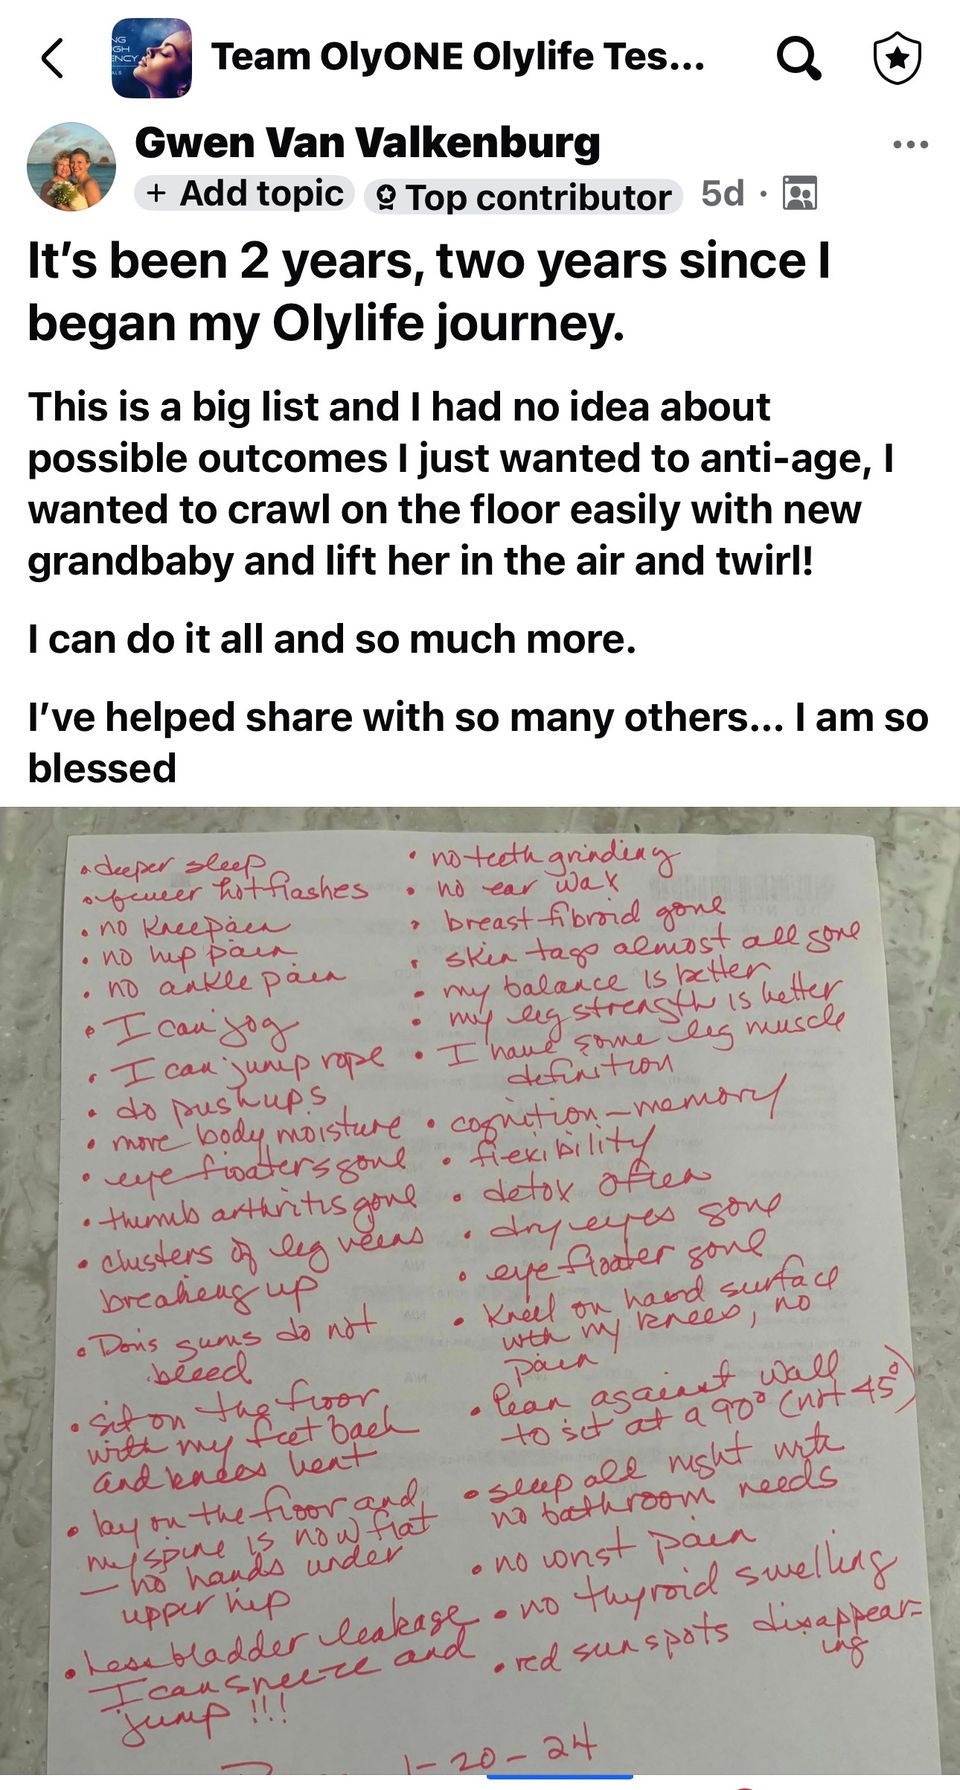 Team OlyONE Olylife Tes...
Gwen Van Valkenburg
+ Add topic
Top contributor
5d
It's been 2 years, two years since I
began my Olylife journey.
This is a big list and I had no idea about
possible outcomes I just wanted to anti-age, I
wanted to crawl on the floor easily with new
grandbaby and lift her in the air and twirl!
I can do it all and so much more.
I've helped share with so many others... I am so
blessed
• deeper sleep
• fewer hot flashes
• no knee pain
• no hip pain
• no ankle pain
• I can jog
• I can jump rope
• do push ups
• more body moisture
• eye floaters gone
• thumb arthritis gone
• clusters of leg veins
breaking up
• Don's gums do not
bleed
• sit on the floor
with my feet back
and knees bent
• lay on the floor and
my spine is now flat
— no hands under
upper hip
• Less bladder leakage
I can sneeze and
jump !!!
• no teeth grinding
• no ear wax
• breast fibroid gone
• skin tags almost all gone
• my balance is better
• my leg strength is better
• I have some leg muscle
definition
• cognition - memory
• flexibility
• detox often
• dry eyes gone
• eye floater gone
• Kneel on hard surface
with my knees, no
pain
• lean against wall
to sit at a 90° (not 45°)
• sleep all night with
no bathroom needs
• no wrist pain
• no thyroid swelling
• red sun spots disappear-
ing
1-20-24